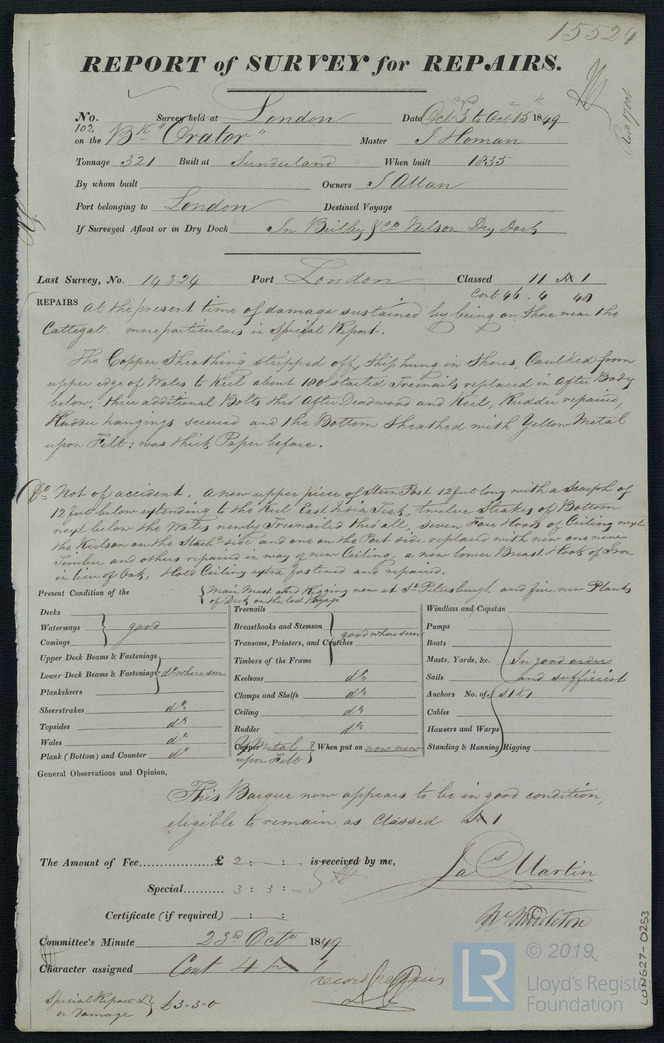 15524
REPORT of SURVEY for REPAIRS.
No. Survey held at London Date Oct 3rd to Oct 15th 1849
102 on the Bk "Orator" Master J Homan
Tonnage 321 Built at Sunderland When built 1835
By whom built Owners J Allan
Port belonging to London Destined Voyage
If Surveyed Afloat or in Dry Dock In Bilbey & Co Nelson Dry Dock
Last Survey, No. 14324 Port London Classed 11 A 1
Cont 46. 4 48
REPAIRS At the present time of damage sustained by being on Shore near the
Cattegat, more particulars in Special Report.
The Copper Sheathing stripped off, Ship hung in Shores, Caulked from
upper edge of Wales to Keel about 100 started Treenails replaced in After Body
below, three additional Bolts thro After Deadwood and Keel, Rudder repaired,
Rudder hangings secured and the Bottom Sheathed with Yellow Metal
upon Felt: was thick Paper before.
Do Not of accident. A new upper piece of Stern Post 12 feet long with a Scarph of
12 feet below extending to the Keel East India Teak, twelve Strakes of Bottom
next below the Wales newly Treenailed thro all, seven Fair Hoods of Ceiling next
the Keelson on the Starbd side and one on the Port side replaced with new one new
Timber and others repaired in way of new Ceiling, a new lower Breast Hook of Iron
in lieu of Oak, Hold Ceiling extra fastened and repaired.
Present Condition of the { Main Mast and Rigging new at St Petersburgh and five new Planks
of Deck on the last Voyage
Decks
Waterways } good
Comings
Upper Deck Beams & Fastenings
Lower Deck Beams & Fastenings do where seen
Planksheers
Sheerstrakes do
Topsides do
Wales do
Plank (Bottom) and Counter do
Treenails
Breasthooks and Stemson
Transoms, Pointers, and Crutches good where seen
Timbers of the Frame
Keelsons do
Clamps and Shelfs do
Ceiling do
Rudder do
Copper Y Metal upon Felt } When put on now new
Windlass and Capstan
Pumps
Boats
Masts, Yards, &c. In good order
Sails and sufficient
Anchors No. of
Cables
Hawsers and Warps
Standing & Running Rigging
General Observations and Opinion,
This Barque now appears to be in good condition,
eligible to remain as Classed A 1
The Amount of Fee £ 2 : - : - is received by me,
Special 3 : 3 : -
Jas Martin
Certificate (if required) - : - :
Wm Middleton
Committee's Minute 23rd Octr 1849
Character assigned Cont 4 A 1
Special Report on Damage } £3-3-0
© 2019
LR
Lloyd's Register
Foundation
LON627-0253